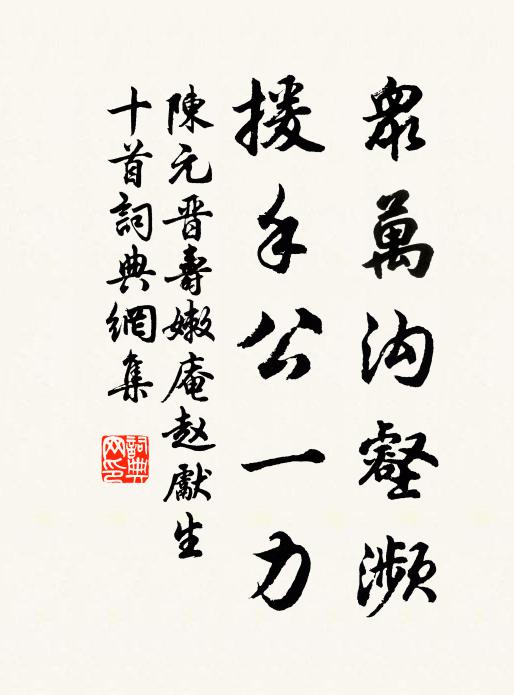 眾萬沟壑瀕
援手公一力
陳元晋壽嫩庵赵獻生
十首詞典網集
詞典网印